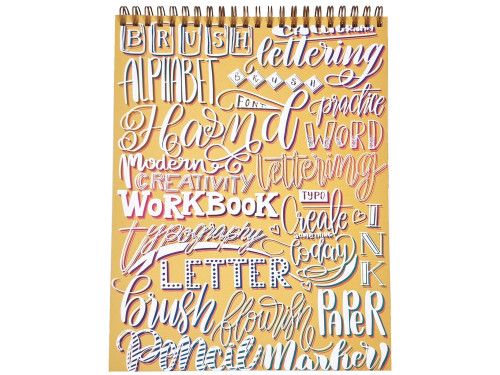 BRUSH
lettering
ALPHABET
BRUSH
FONT
practice
Hand
WORD
Modern
lettering
CREATIVITY
TYPO
WORKBOOK
Create
SOMETHING
today
INK
typography
LETTER
brush
flourish
PAPER
Pencil
marker